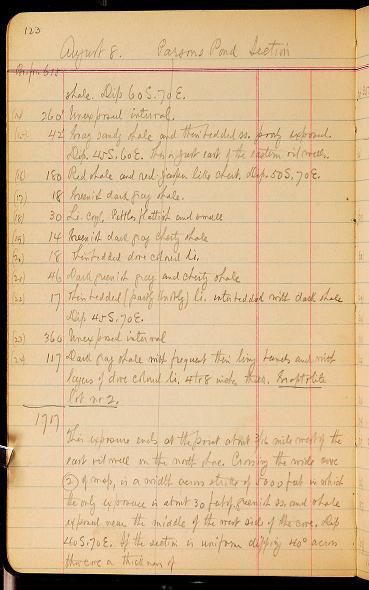 123
August 8. Parsons Pond Section
shale. Dip 60 S. 70 E.
(14) 260' Unexposed interval.
(15) 42 Gray sandy shale and thin bedded ss. poorly exposed.
Dip. 45 S. 60 E. This is just east of the eastern oil wells.
(16) 180 Red shale and red jasper like chert. Dip. 50 S. 70 E.
(17) 18 Greenish dark gray shale.
(18) 30 Ls. congl. Pebbles flattish and small
(19) 14 Greenish dark gray cherty shale
(20) 18 Thin bedded dove colored li.
(21) 46 Dark greenish gray and cherty shale
(22) 17 Thin bedded (partly knotty) li. interbedded with dark shale
Dip 45 S. 70 E.
(23) 360 Unexposed interval
(24) 117 Dark gray shale with frequent thin limy bands and with
layers of dove colored li. 4 to 8 inches thick. Graptolite
Lot no 2.
1717
This exposure ends at the point about 3/16 mile west of the
east oil well on the north shore. Crossing the wide cove
(2) of map, is a width across strike of 5000 feet in which
the only exposure is about 30 feet of greenish ss. and shale
exposed near the middle of the west side of the cove. Dip
40 S. 70 E. If the section is uniform dipping 40° across
this cove a thickness of